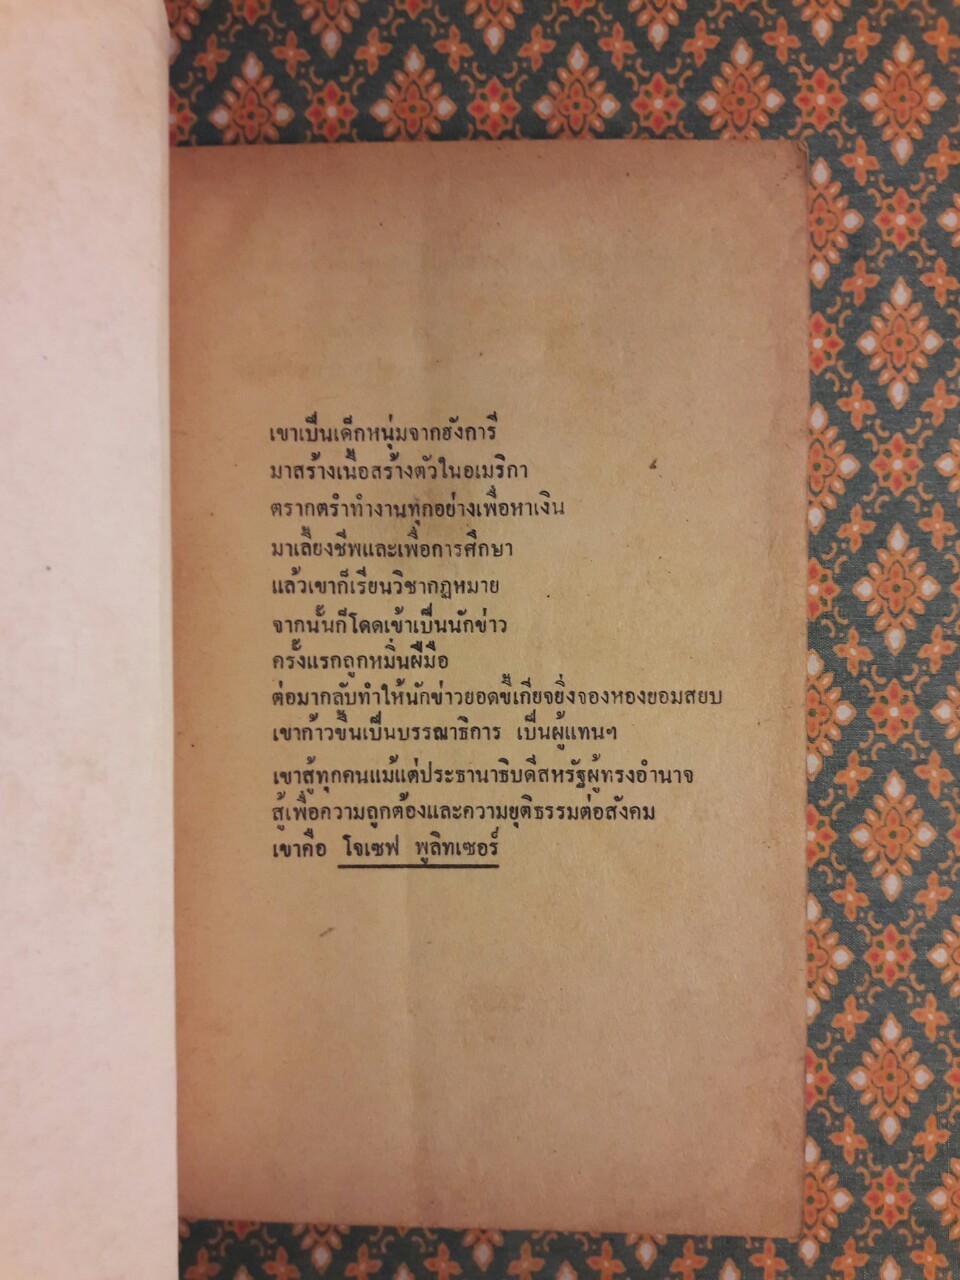 เขาเป็นเด็กหนุ่มจากฮังการี
มาสร้างเนื้อสร้างตัวในอเมริกา
ตรากตรำทำงานทุกอย่างเพื่อหาเงิน
มาเลี้ยงชีพและเพื่อการศึกษา
แล้วเขาก็เรียนวิชากฎหมาย
จากนั้นก็โดดเข้าเป็นนักข่าว
ครั้งแรกถูกหมิ่นฝีมือ
ต่อมากลับทำให้นักข่าวยอดขี้เกียจยิ่งจองหองยอมสยบ
เขาก้าวขึ้นเป็นบรรณาธิการ เป็นผู้แทนฯ
เขาสู้ทุกคนแม้แต่ประธานาธิบดีสหรัฐผู้ทรงอำนาจ
สู้เพื่อความถูกต้องและความยุติธรรมต่อสังคม
เขาคือ โจเซฟ พูลิทเซอร์